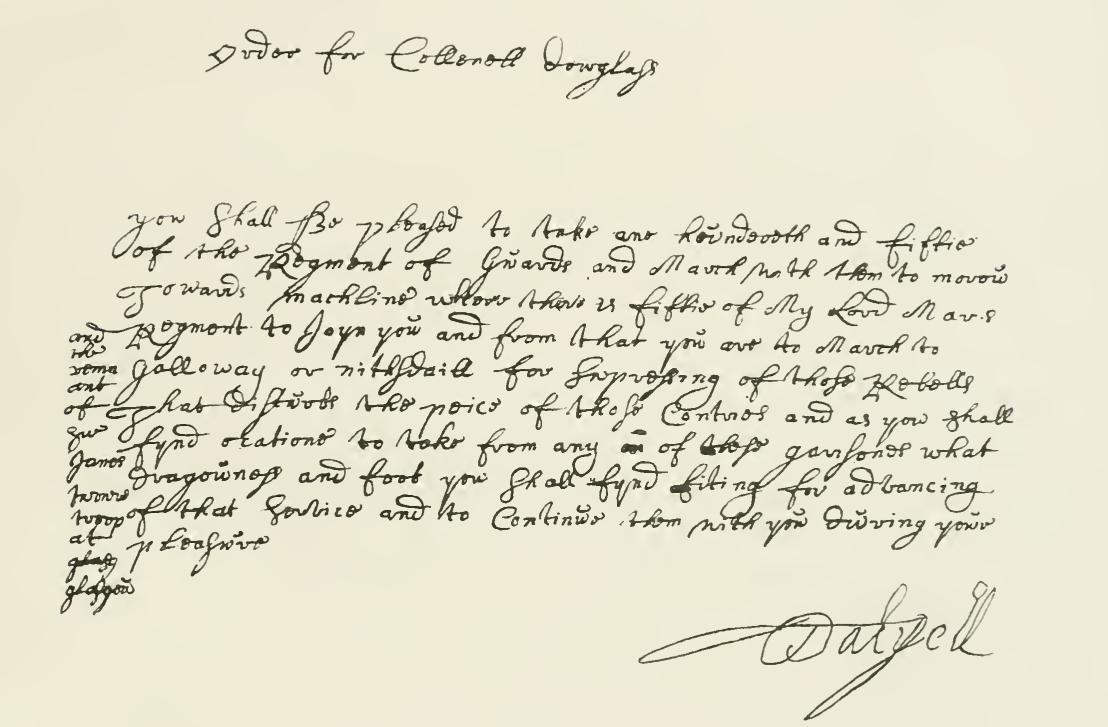 Order for Collenell Dowglass
you Shall Be pleased to take ane hundereth and fiftie
of the Regment of Guards and March with them to morow
Towards machline where there is fiftie of My Lord Mars
Regment to Joyn you and from that you are to March to
Galloway or nithsdaill for Supressing of those Rebells
That disturbs the peice of those Contries and as you shall
fynd ocatione to take from any of these garisones what
dragownes and foot you Shall fynd fiting for advancing
of that Service and to Continue them with you during your
pleasure
and
the
rema
ant
of
Sir
James
troop
at
glasgow
Dalyell